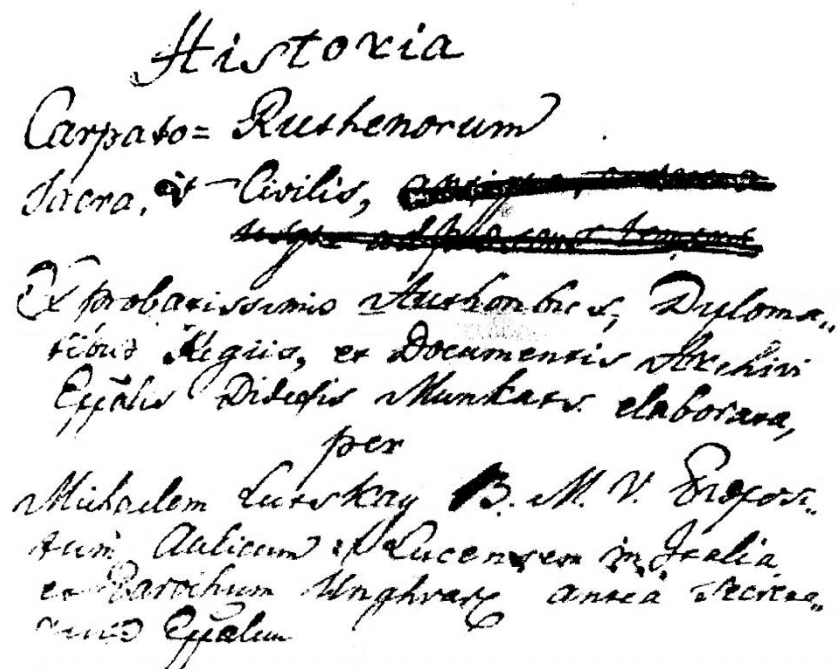 Historia
Carpato= Ruthenorum
Sacra, et Civilis,
usque ad
Ex probatissimis Authoribus, Dyploma„
tibus Regiis, et Documentis Archivi
Eppalis Munkats. elaborata,
per
Michaelem Lutskay B. M. V.
Aulicum et Lucensem in Italia
et Parochum Unghvar antea Secreta„
Eppalem